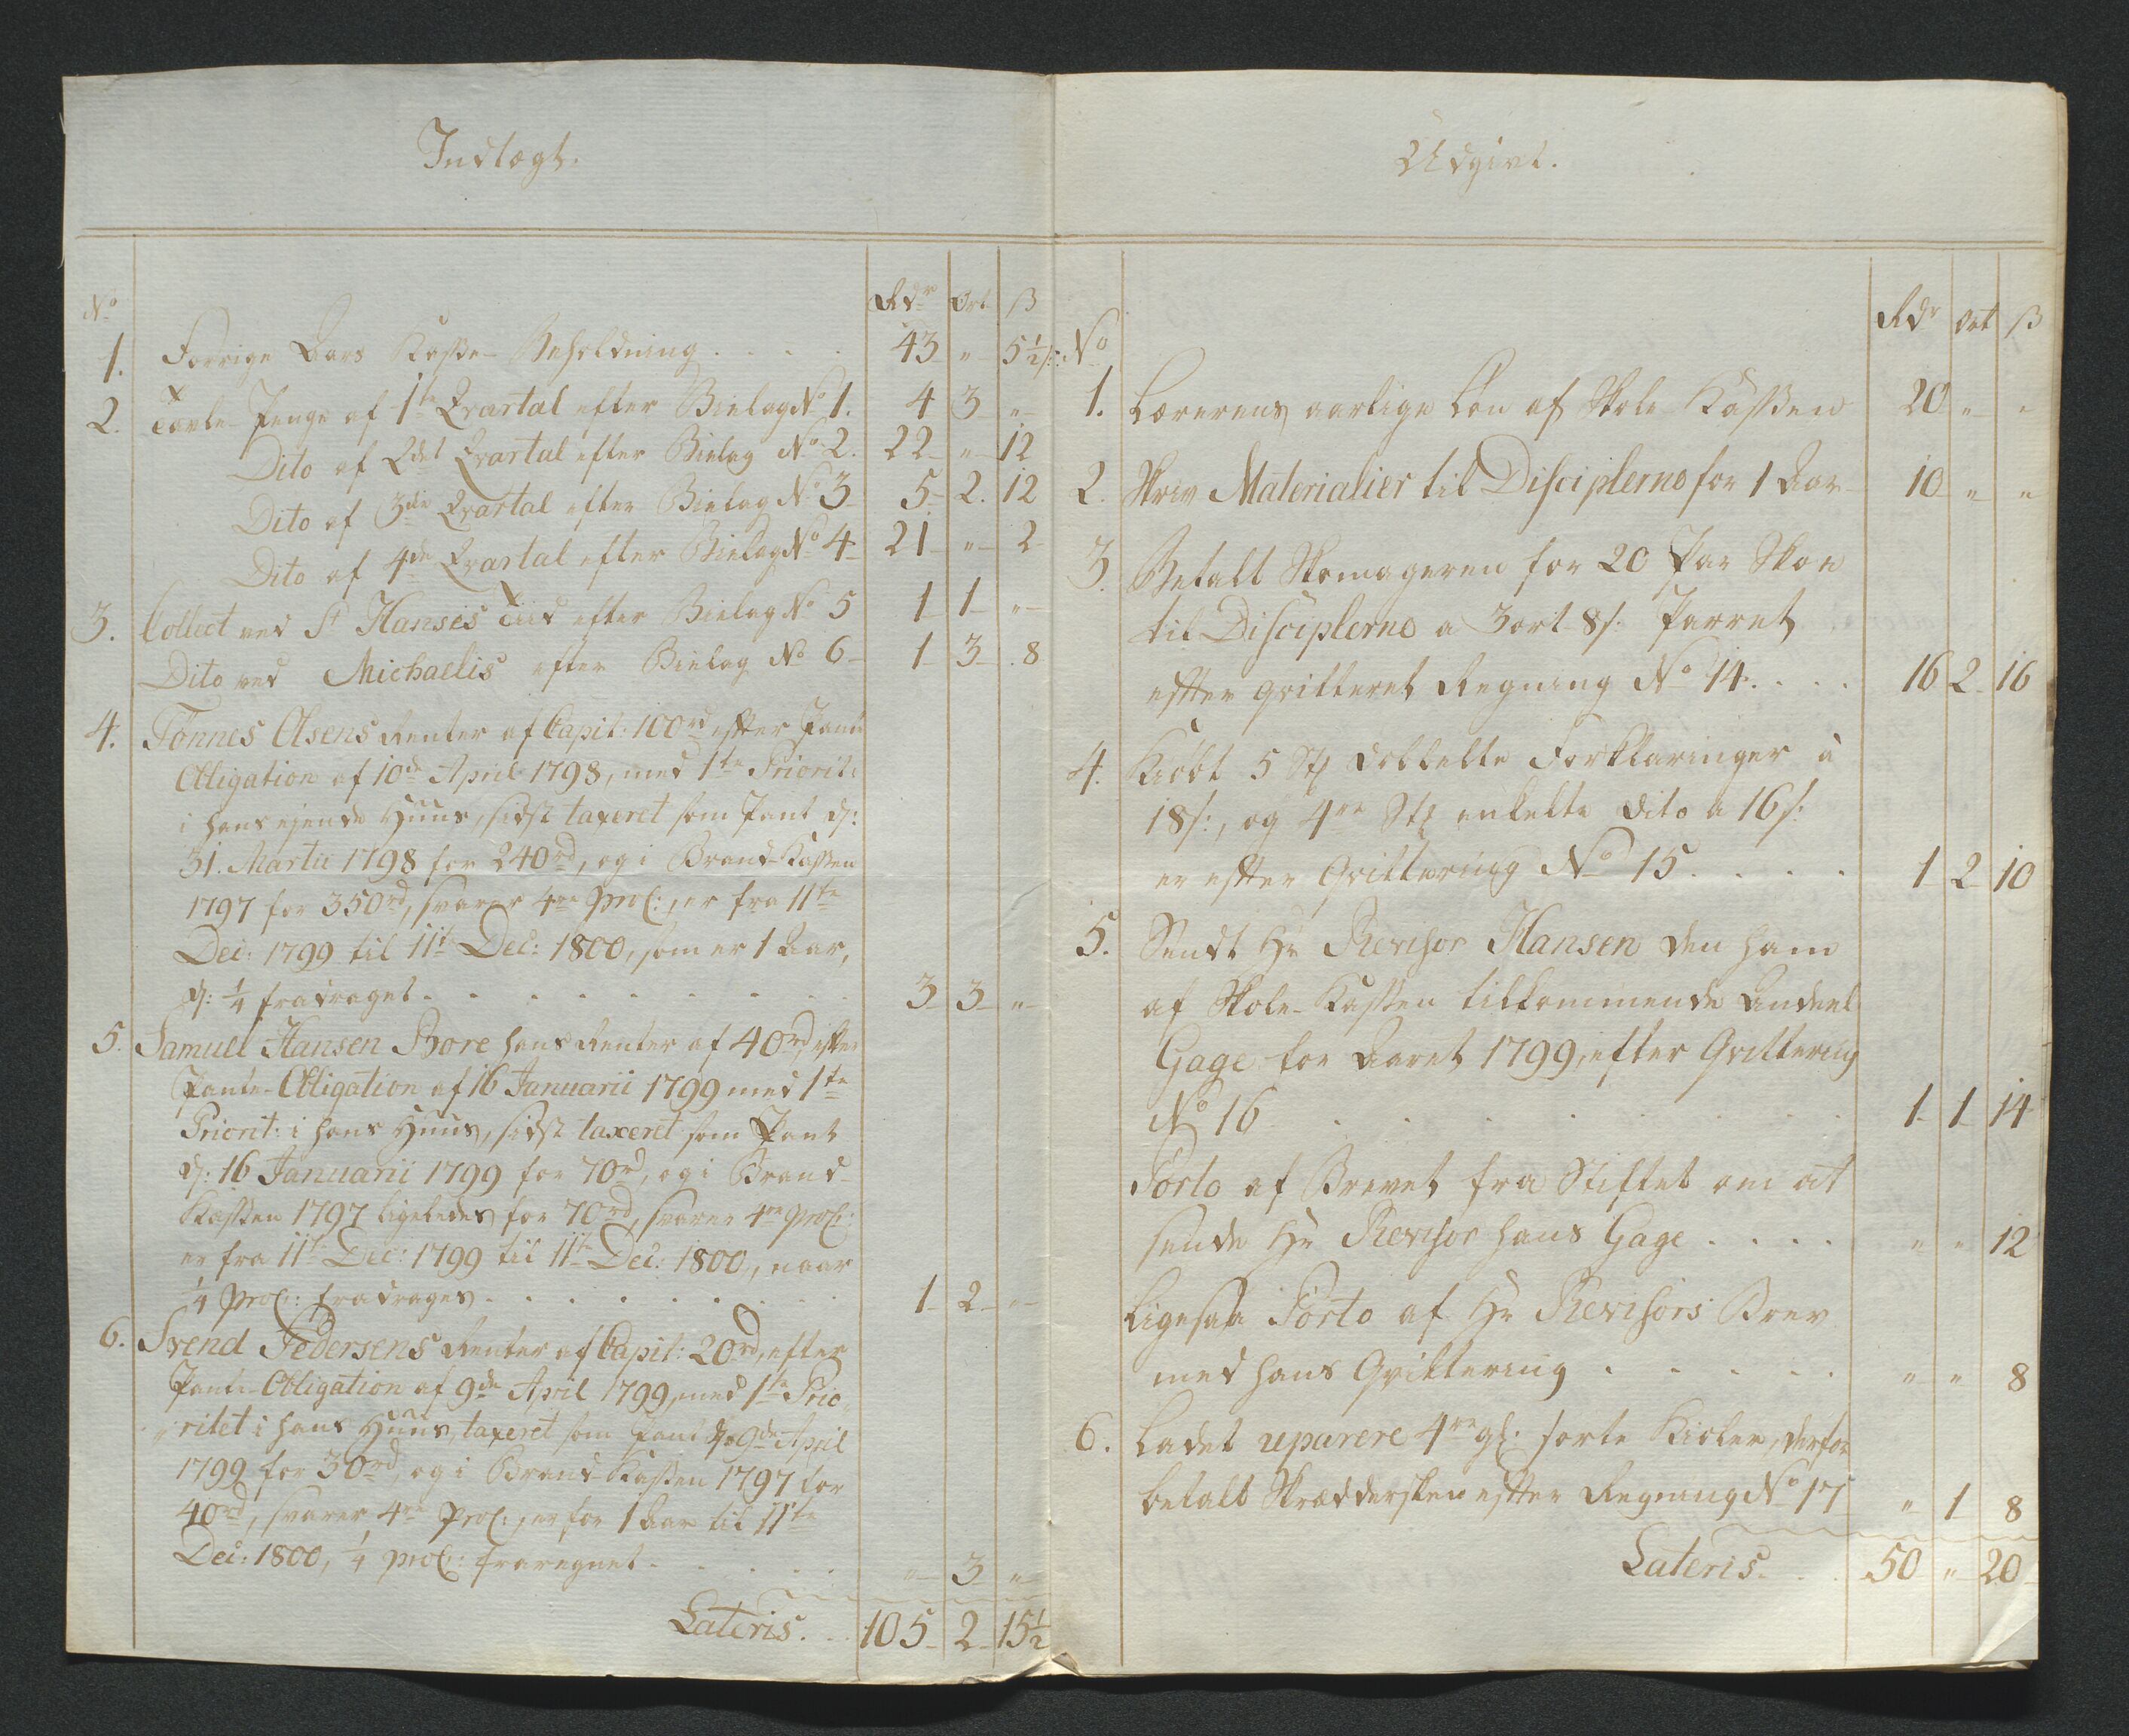 Indtægt.
No Rdr Ort ß
1. Forrige Aars Kaße-Beholdning . . . . 43 " 5½ s:
2. Tavle-Penge af 1te Qvartal efter Bielag No 1. 4 3 "
Dito af 2det Qvartal efter Bielag No 2. 22 " 12
Dito af 3die Qvartal efter Bielag No 3 5 2. 12
Dito af 4de Qvartal efter Bielag No 4 21 " 2
3. Collect ved St Hanses Tiid efter Bielag No 5 1 1 "
Dito ved Michaelis efter Bielag No 6 1 3 8
4. Tönnes Olsens Renter af Capit: 100rd efter Pante
Obligation af 10de April 1798, med 1te Priorit:
i hans ejende Huus, sidst taxeret som Pant d:
31. Martii 1798 for 240rd, og i Brand-Kaßen
1797 for 350rd, svarer 4re ProC:, er fra 11te
Dec: 1799 til 11te Dec: 1800, som er 1 Aar,
d: ¼ fradraget . . . . . . . . 3 3 "
5. Samuel Hansen Bore hans Renter af 40rd, efter
Pante-Obligation af 16 Januarii 1799 med 1te
Priorit: i hans Huus, sidst taxeret som Pant
d: 16 Januarii 1799 for 70rd, og i Brand-
Kaßen 1797 ligeledes for 70rd, svarer 4re ProC:
er fra 11te Dec: 1799 til 11te Dec: 1800, naar
¼ ProC: fradrages . . . . . . . 1 2 "
6. Svend Pedersens Renter af Capit: 20rd, efter
Pante-Obligation af 9de April 1799, med 1te Prio-
"ritet i hans Huus, taxeret som Pant d: 9de April
1799 for 30rd, og i Brand-Kaßen 1797 for
40rd, svarer 4re ProC:, er for 1 Aar til 11te
Dec: 1800, ¼ ProC: fraregnet . . . . . " 3 "
Lateris. . . 105 2 15½
Udgivt.
Rdr Ort ß
No
1. Lærerens aarlige Løn af Skole-Kaßen 20 " "
2. Skriv-Materialier til Disciplerne for 1 Aar 10 " "
3. Betalt Skomageren for 20 Par Skoe
til Disciplerne a 3 ort 8 s: Parret
efter qvitteret Regning No 14. . . . 16 2 16
4. Kiöbt 5 Stk dobbelte Forklaringer à
18 s:, og 4re Stk enkelte Dito a 16 s:
er efter Qvittering No 15 . . . . 1 2 10
5. Sendt Hr Revisor Hansen den ham
af Skole-Kaßen tilkommende Andeel
Gage for Aaret 1799, efter Qvittering
No 16 . . . . . . . . 1 1 14
Porto af Brevet fra Stiftet om at
sende Hr Revisor hans Gage . . . . " " 12
Ligesaa Porto af Hr Revisors Brev
med hans Qvittering . . . . . " " 8
6. Ladet reparere 4re gl: sorte Kioler, derfor
betalt Skrædderen efter Regning No 17 " 1 8
Lateris. . . 50 " 20